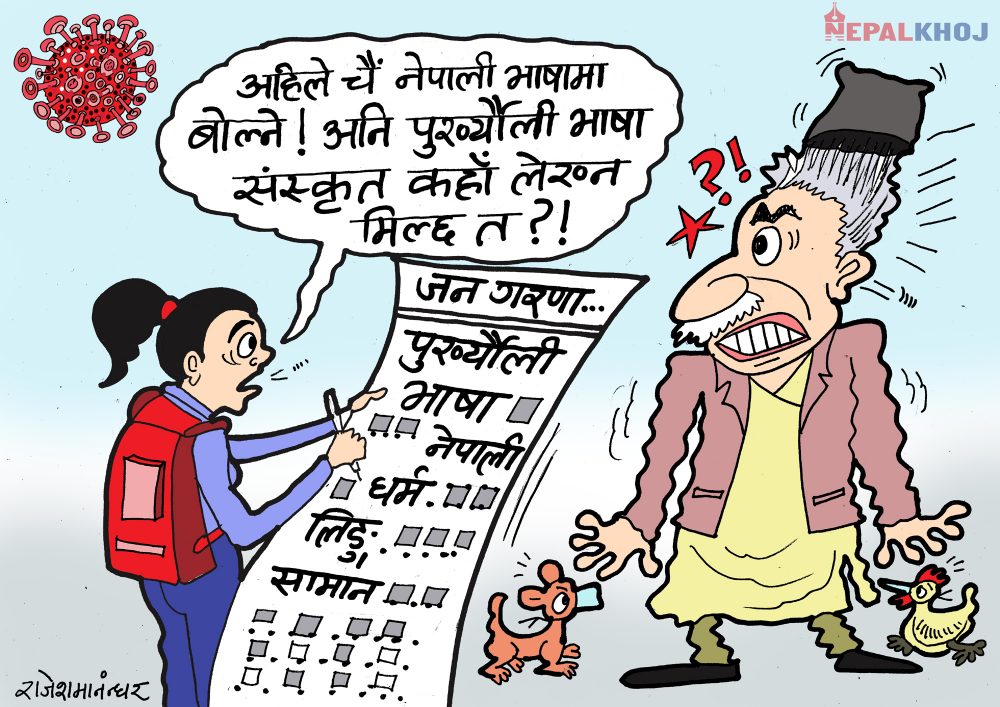 NEPALKHOJ
अहिले चैं नेपाली भाषामा
बोल्ने! अनि पुर्ख्यौली भाषा
संस्कृत कहाँ लेख्न
मिल्छ त ?!
?!
जन गणना...
पुर्ख्यौली
भाषा
नेपाली
धर्म.
लिङ्ग
सामान
राजेशमानन्धर